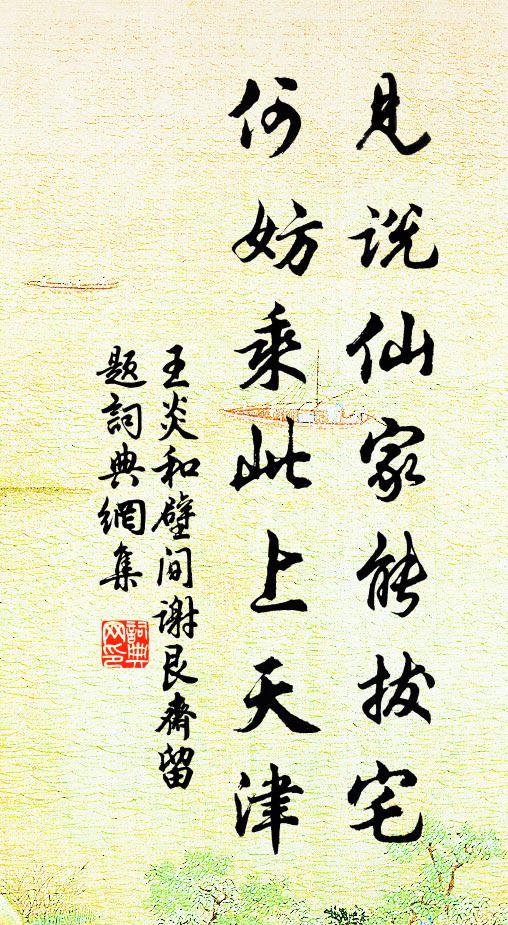 見说仙家能拔宅
何妨乘此上天津
王炎和壁间谢艮齋留
题詞典網集
詞典網印